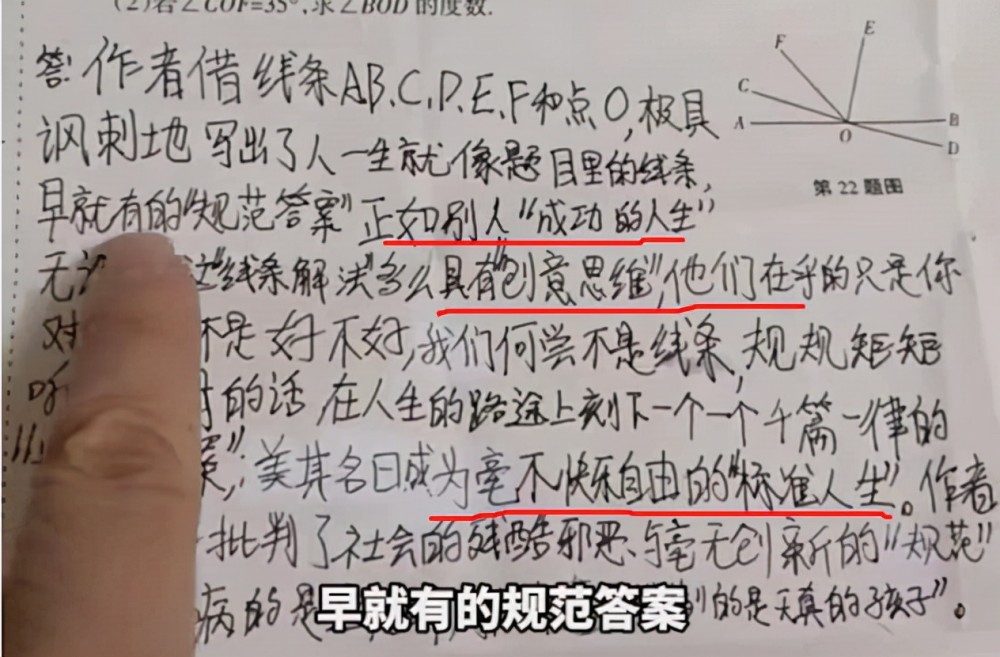 (2)若∠COF=35°,求∠BOD的度数.
答:作者借线条A、B、C、D、E、F和点O,极具
讽刺地写出了人一生就像题目里的线条,
早就有的“规范答案”正如别人“成功的人生”
无 这“线条解法”多么具有“创意思维”,他们在乎的只是你
对 不是好不好,我们何尝不是线条,规规矩矩
听 的话,在人生的路途上刻下一个一个千篇一律的
”,美其名曰成为毫不快乐自由的“标准人生”。作者
批判了社会的残酷邪恶、与毫无创新的“规范”
病的是 的是天真的孩子”。
F
E
C
A
O
B
D
第22题图
早就有的规范答案